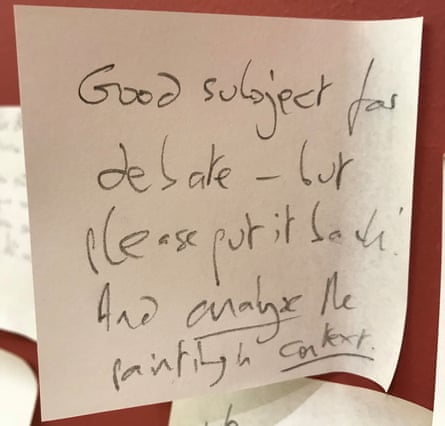 Good subject for
debate – but
please put it back!
And analyse the
painting in context.